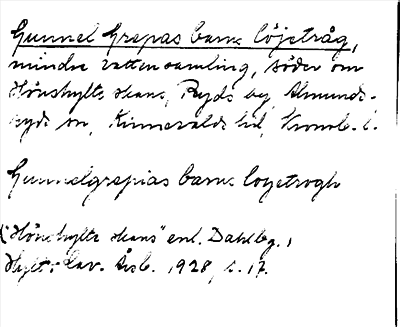 Gunnel Grepas barns löjetråg,
mindre vattensamling, söder om
Hönshylte skans, Ryds by, Almunds-
ryds sn, Kinnevalds hd, Kronob. l.
Gunnelgrepias barns loyetrogh
("Hönshylte skans" enl. Dahlbg.,
Hylt. Cav. Årsb. 1928, s. 17.